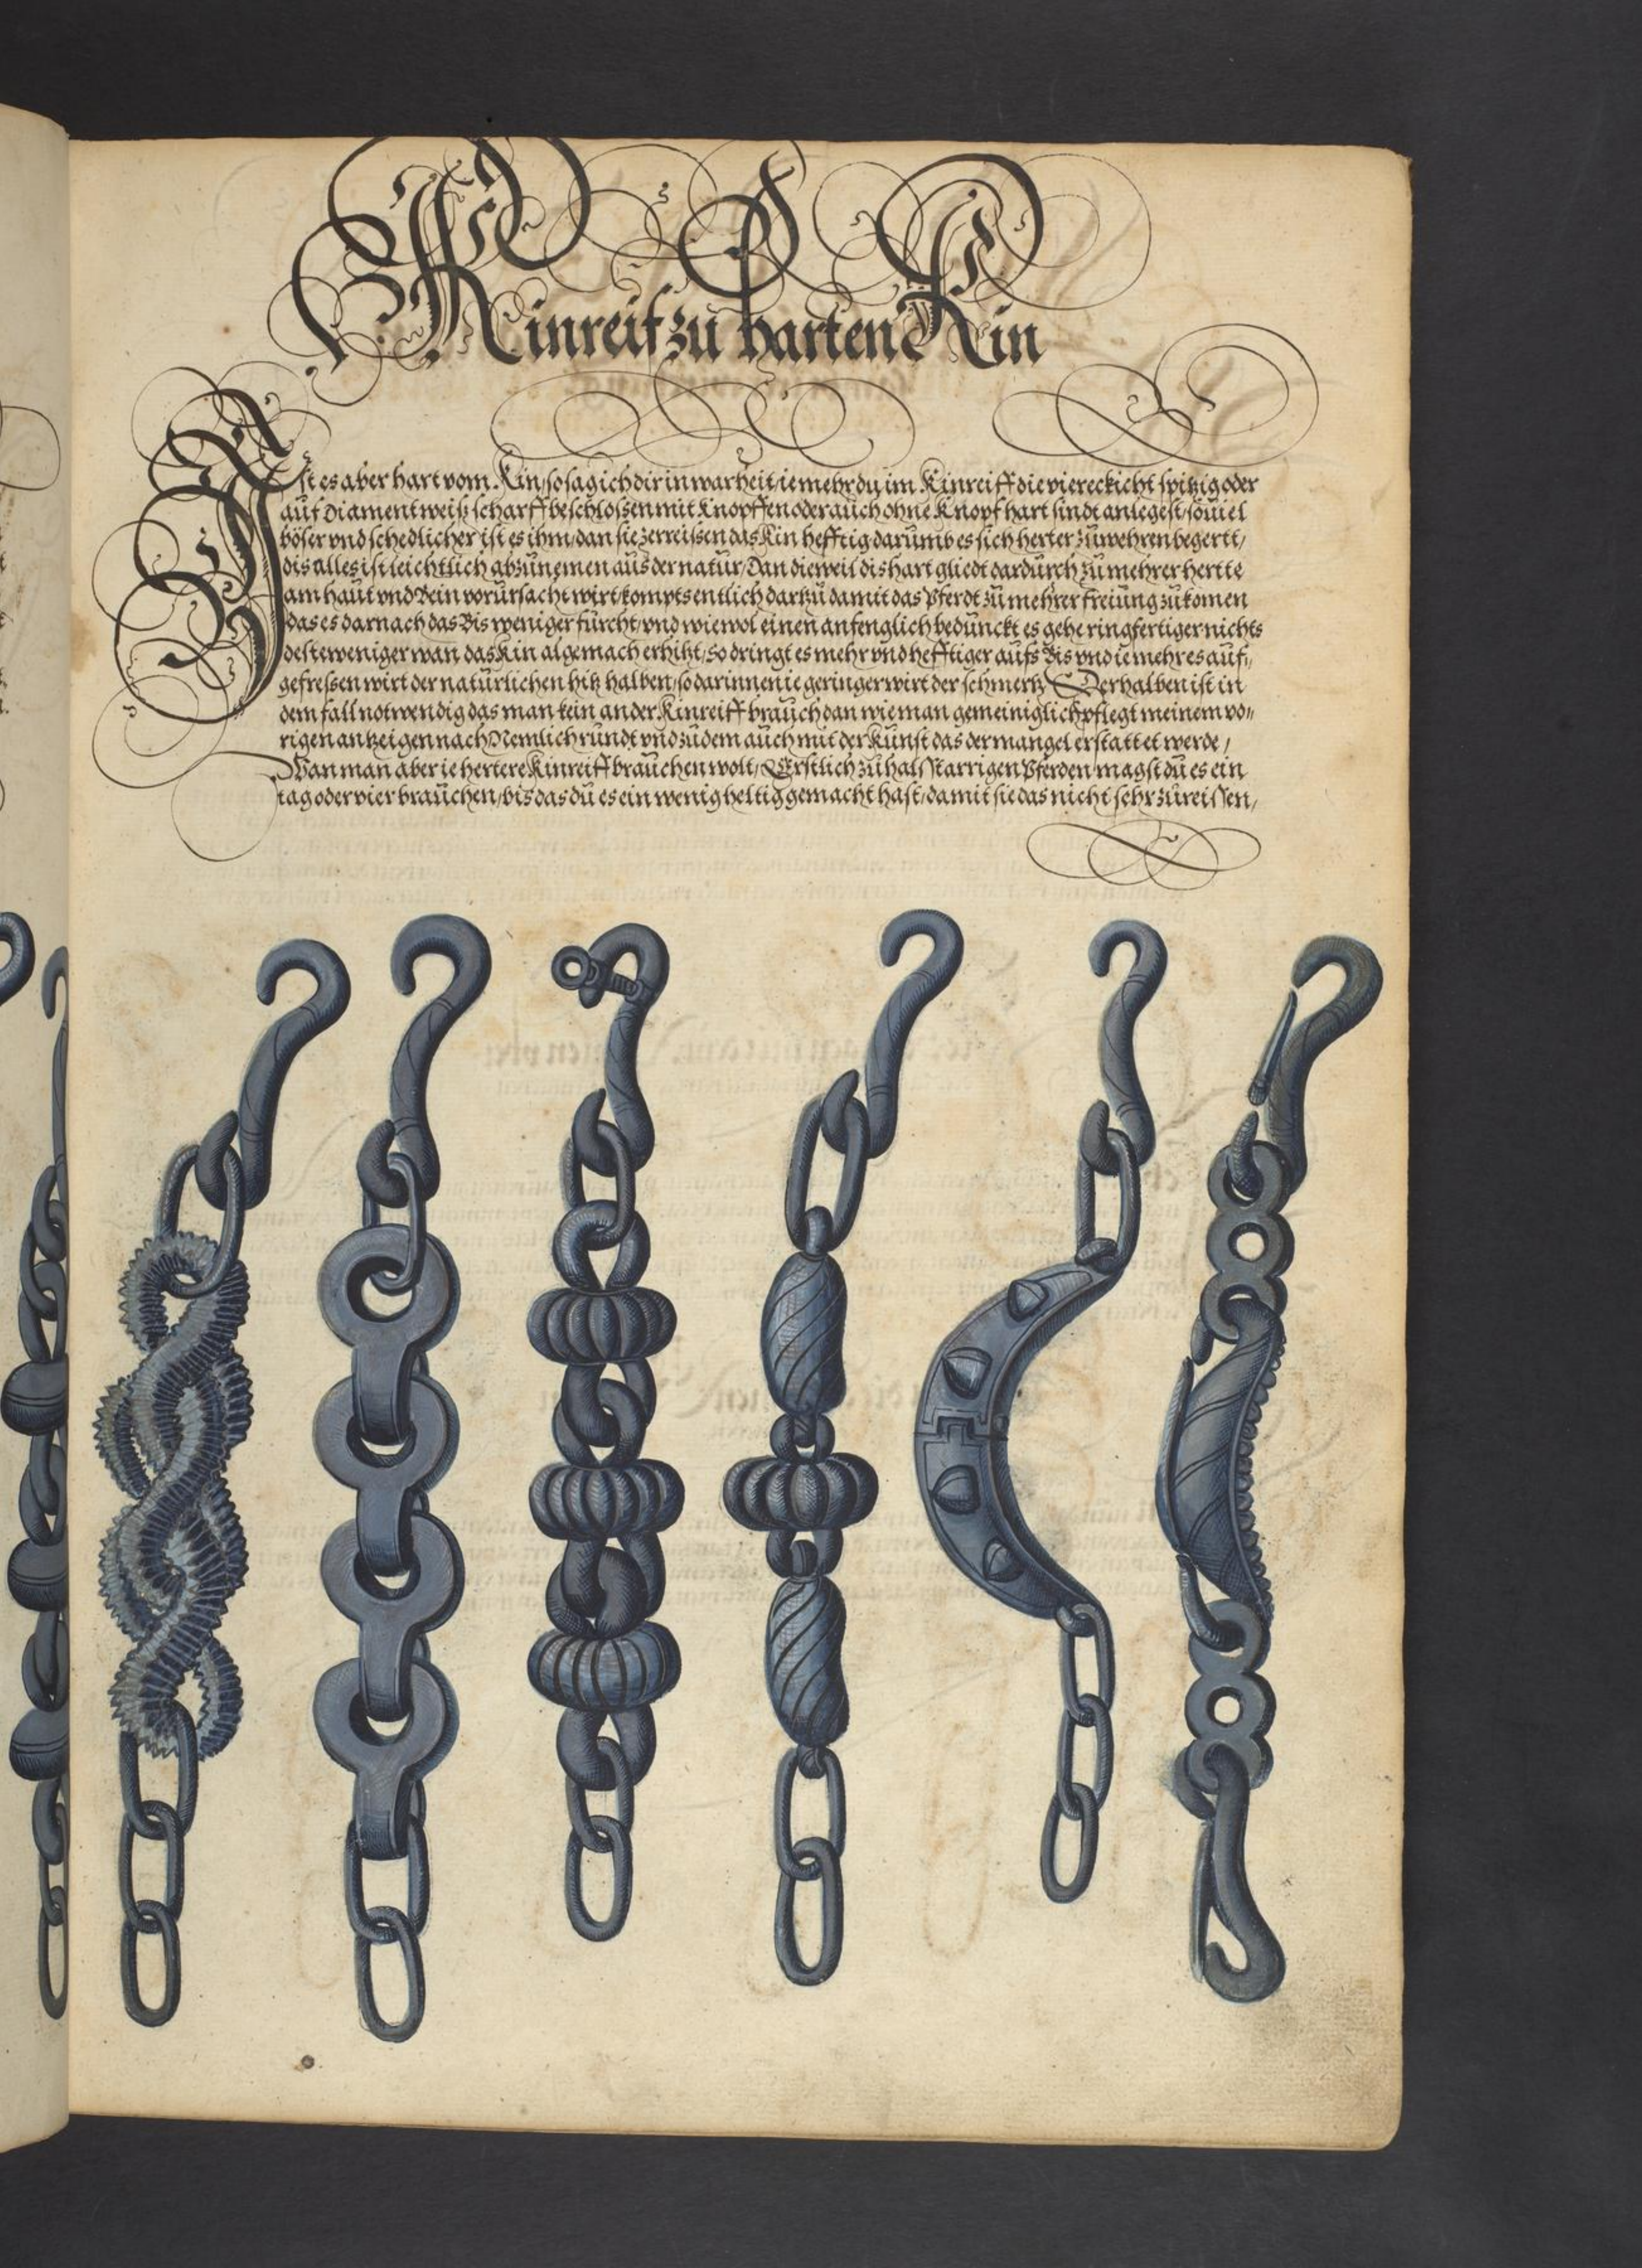 Kinreif zu harten Kin
Ist es aber hart vom Kin/ so sag ich dir in warheit/ ie mehr du im Kinreiff die viereckicht spitzig oder
auf Diamentweiß scharff beschlossen mit Knopffen oder auch ohne Knopf hart sindt anlegest/ souiel
böser vnd schedlicher ist es ihm/ dan sie zerreissen das Kin hefftig darumb es sich herter zuwehren begertt/
dis alles ist leichtlich abzunemen aus der natur/ Dan dieweil dis hart gliedt dardurch zu mehrer hertte
am haut vnd Bein vorursacht wirt/ kompts entlich dartzu damit das Pferdt zu mehrer freiung zukomen
das es darnach das Bis weniger furcht/ vnd wiewol einen anfenglich bedunckt es gehe ringfertiger nichts
desteweniger wan das Kin algemach erhitzt/ so dringt es mehr vnd hefftiger aufs Bis vnd ie mehr es auf,
gefressen wirt der naturlichen hitz halben/ so darinnen ie geringer wirt der schmertz Derhalben ist in
dem fall notwendig das man kein ander Kinreiff brauch dan wie man gemeiniglich pflegt meinem vo-
rigen antzeigen nach Nemlich rundt vnd zudem auch mit der Kunst das der mangel erstattet werde/
Wan man aber ie hertere Kinreiff brauchen wolt/ Erstlich zu halsstarrigen Pferden magst du es ein
tag oder vier brauchen/ bis das du es ein wenig heltig gemacht hast/ damit sie das nicht sehr zureissen/